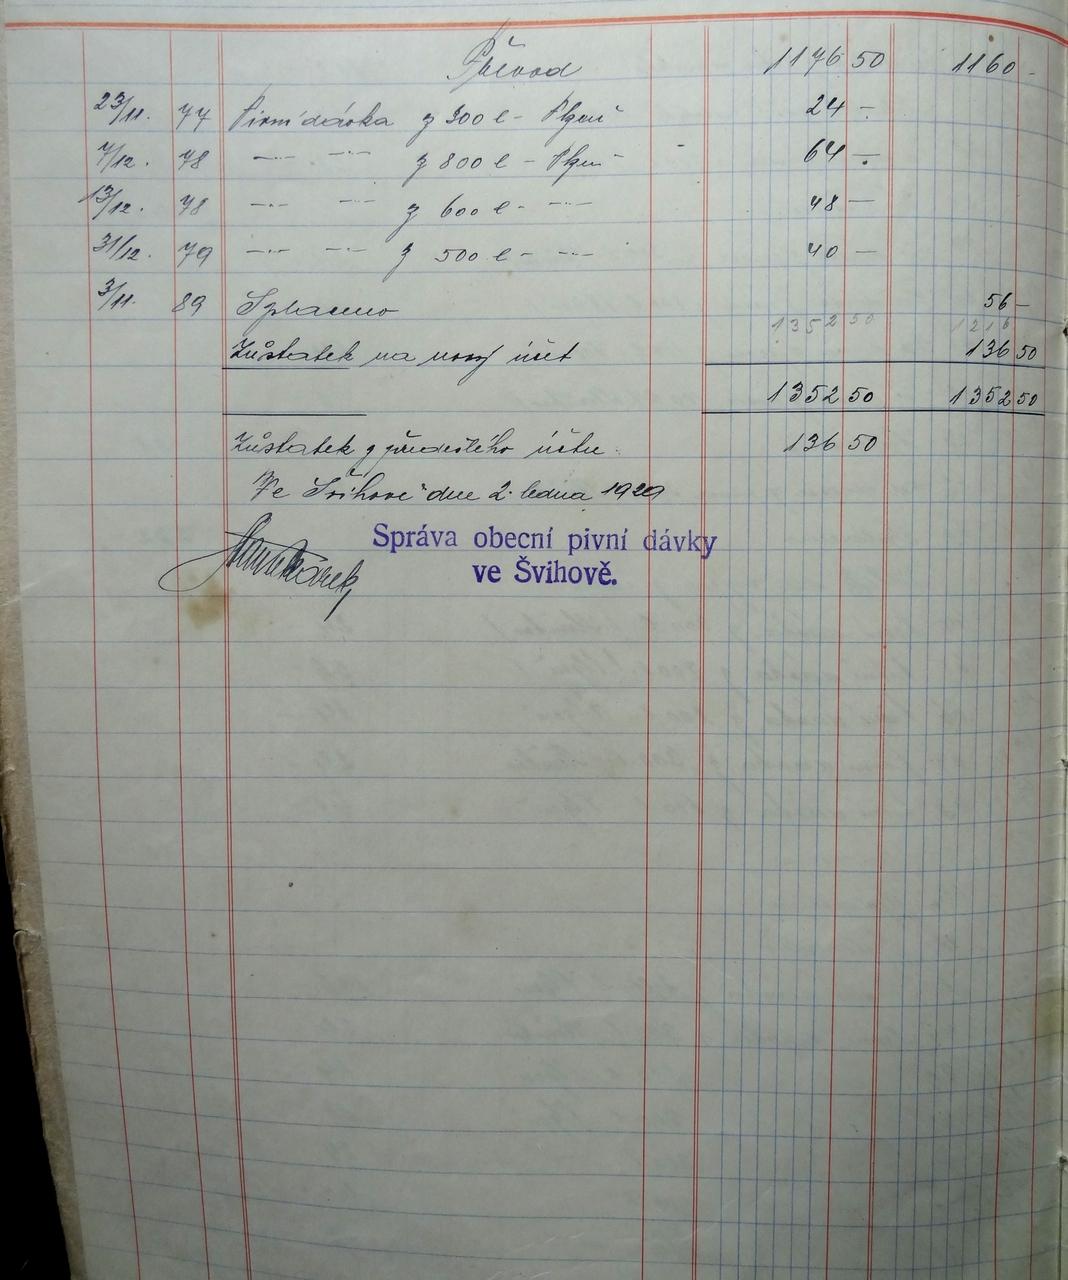 Převod 1176 50 1160 -
23/11. 77 Pivní dávka z 300 l - Plzeň 24 -
7/12. 78 -"- -"- z 800 l - Plzeň - 64 -
13/12. 78 -"- -"- z 600 l - -"- 48 -
31/12. 79 -"- -"- z 500 l - -"- 40 -
3/11. 89 Splaceno 56 -
1352 50 1216
Zůstatek na nový účet 136 50
1352 50 1352 50
Zůstatek z předešlého účtu 136 50
Ve Švihově dne 2. ledna 1929
Správa obecní pivní dávky
ve Švihově.